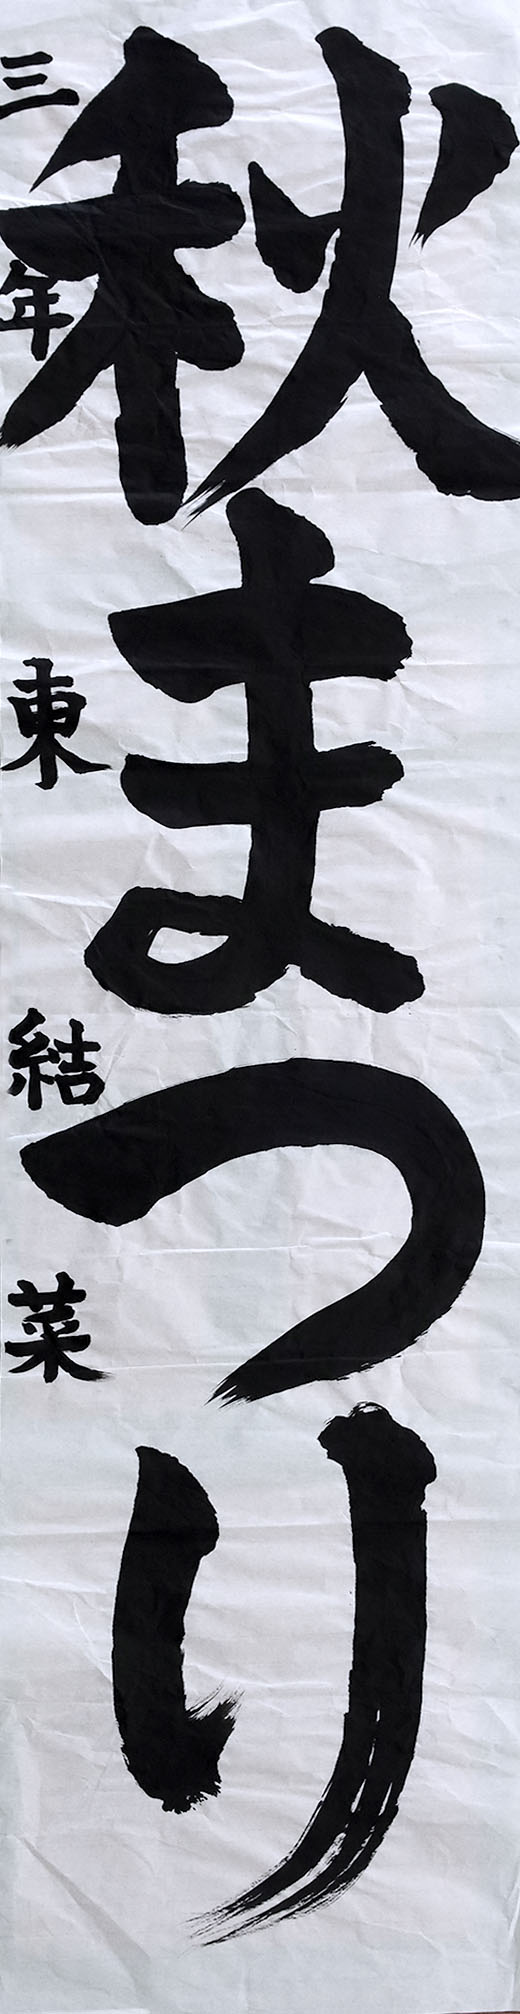 秋まつり
三年 東 結菜